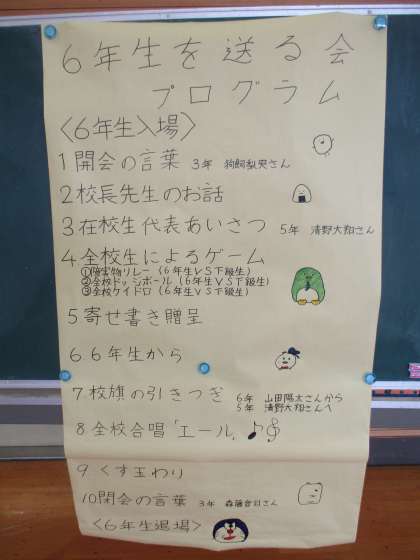 6年生を送る会
プログラム
〈6年生入場〉
1 開会の言葉 3年 狗飼
2 校長先生のお話
3 在校生代表あいさつ 5年 清野大翔さん
4 全校生によるゲーム
①障害物リレー(6年生VS下級生)
②全校ドッジボール(6年生VS下級生)
③全校ケイドロ(6年生VS下級生)
5 寄せ書き贈呈
6 6年生から
7 校旗の引きつぎ 6年 山田陽太さんから
5年 清野大翔さんへ
8 全校合唱「エール」
9 くす玉わり
10 閉会の言葉 3年 森藤
〈6年生退場〉